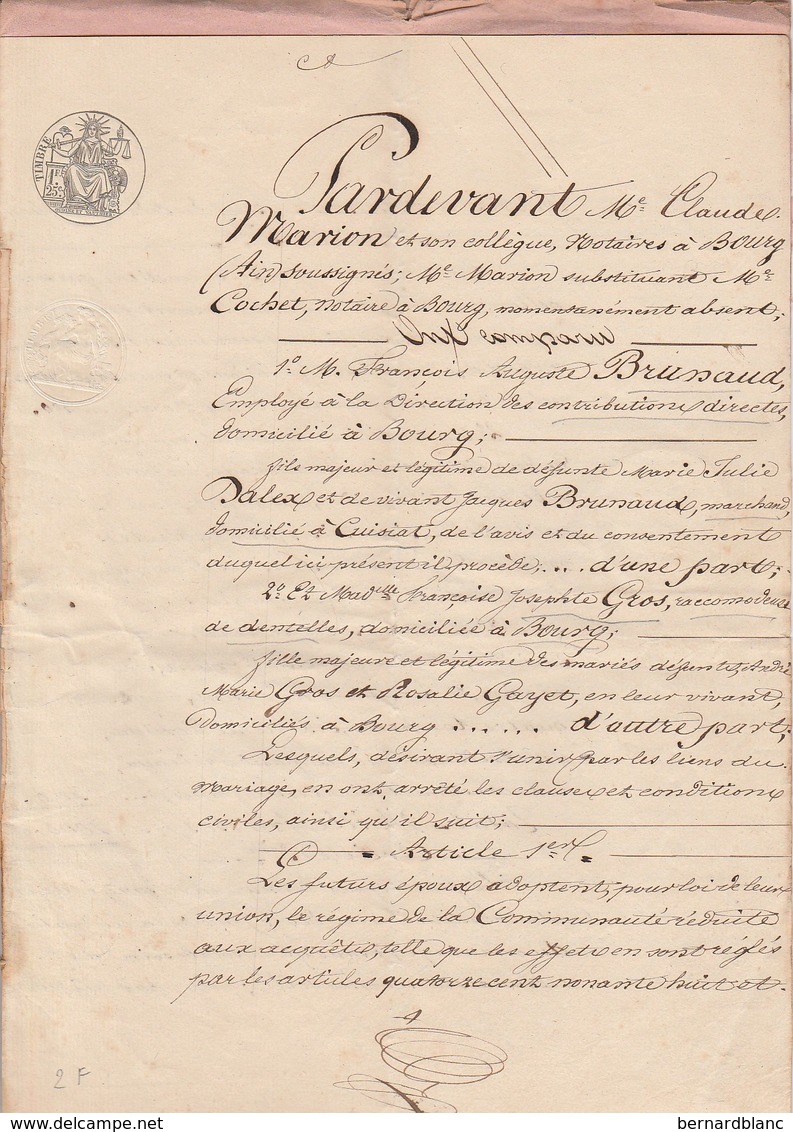 TIMBRE
1F
25c.
Pardevant Me. Claude
Marion et son collègue, Notaires à Bourg
(Ain) soussignés; Me. Marion substituant Me.
Cochet, Notaire à Bourg, momentanément absent;
Ont comparu
1o. M. François Auguste Brunaud,
Employé à la Direction des contributions directes,
domicilié à Bourg;
fils majeur et légitime de défunte Marie Julie
Dalex et de vivant Jacques Brunaud, marchand,
domicilié à Cuisiat, de l'avis et du consentement
duquel ici présent il procède; ... d'une part;
2o. Et Madlle. Françoise Josephte Gros, raccomodeuse
de dentelles, domiciliée à Bourg;
fille majeure et légitime des mariés défunts, André
Marie Gros et Rosalie Gayet, en leur vivant,
domiciliés à Bourg ...... d'autre part;
Lesquels, désirant s'unir par les liens du
mariage, en ont arrêté les clauses et conditions
civiles, ainsi qu'il suit;
Article 1er.
Les futurs époux adoptent, pour loi de leur
union, le régime de la Communauté réduite
aux acquêts, telle que les effets en sont réglés
par les articles quatorze cent nonante huit et
2 F
bernardblanc